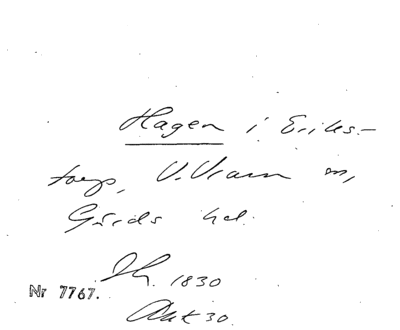 Hagen i Eriks-
torp, V. Vram sn,
Gärds hd.
Th. 1830
Nr 7767.
Akt 30.